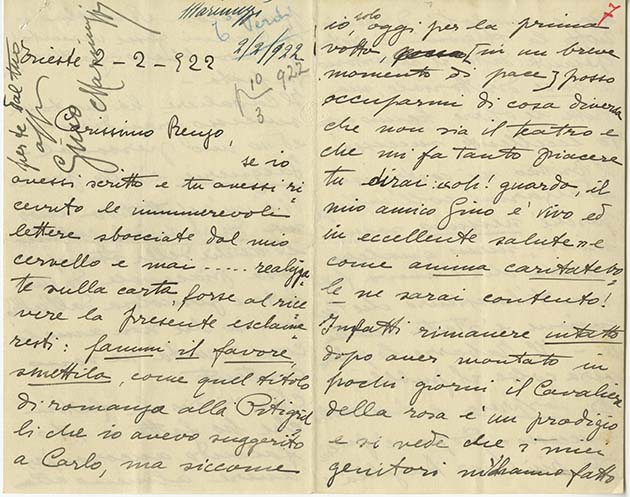 Marinuzzi
Co Verdi
2/2/922
Trieste 2-2-922
10
3
922
per te dal tuo
affº
Gino Marinuzzi
Carissimo Renzo,
se io
avessi scritto e tu avessi ri
cevuto le innumerevoli
lettere sbocciate dal mio
cervello e mai ..... realizza
te sulla carta, forse al rice
vere la presente esclame
resti: fammi il favore
smettila, come quel titolo
di romanza alla Pitigril
li che io avevo suggerito
a Carlo, ma siccome
7
io, solo oggi per la prima
volta, [in un breve
momento di pace] posso
occuparmi di cosa diversa
che non sia il teatro e
che mi fa tanto piacere
tu dirai: oh! guarda, il
mio amico Gino è vivo ed
in eccellente salute» e
come anima caritatevo
le ne sarai contento!
Infatti rimanere intatto
dopo aver montato in
pochi giorni il Cavaliere
della rosa è un prodigio
e si vede che i miei
genitori m'hanno fatto